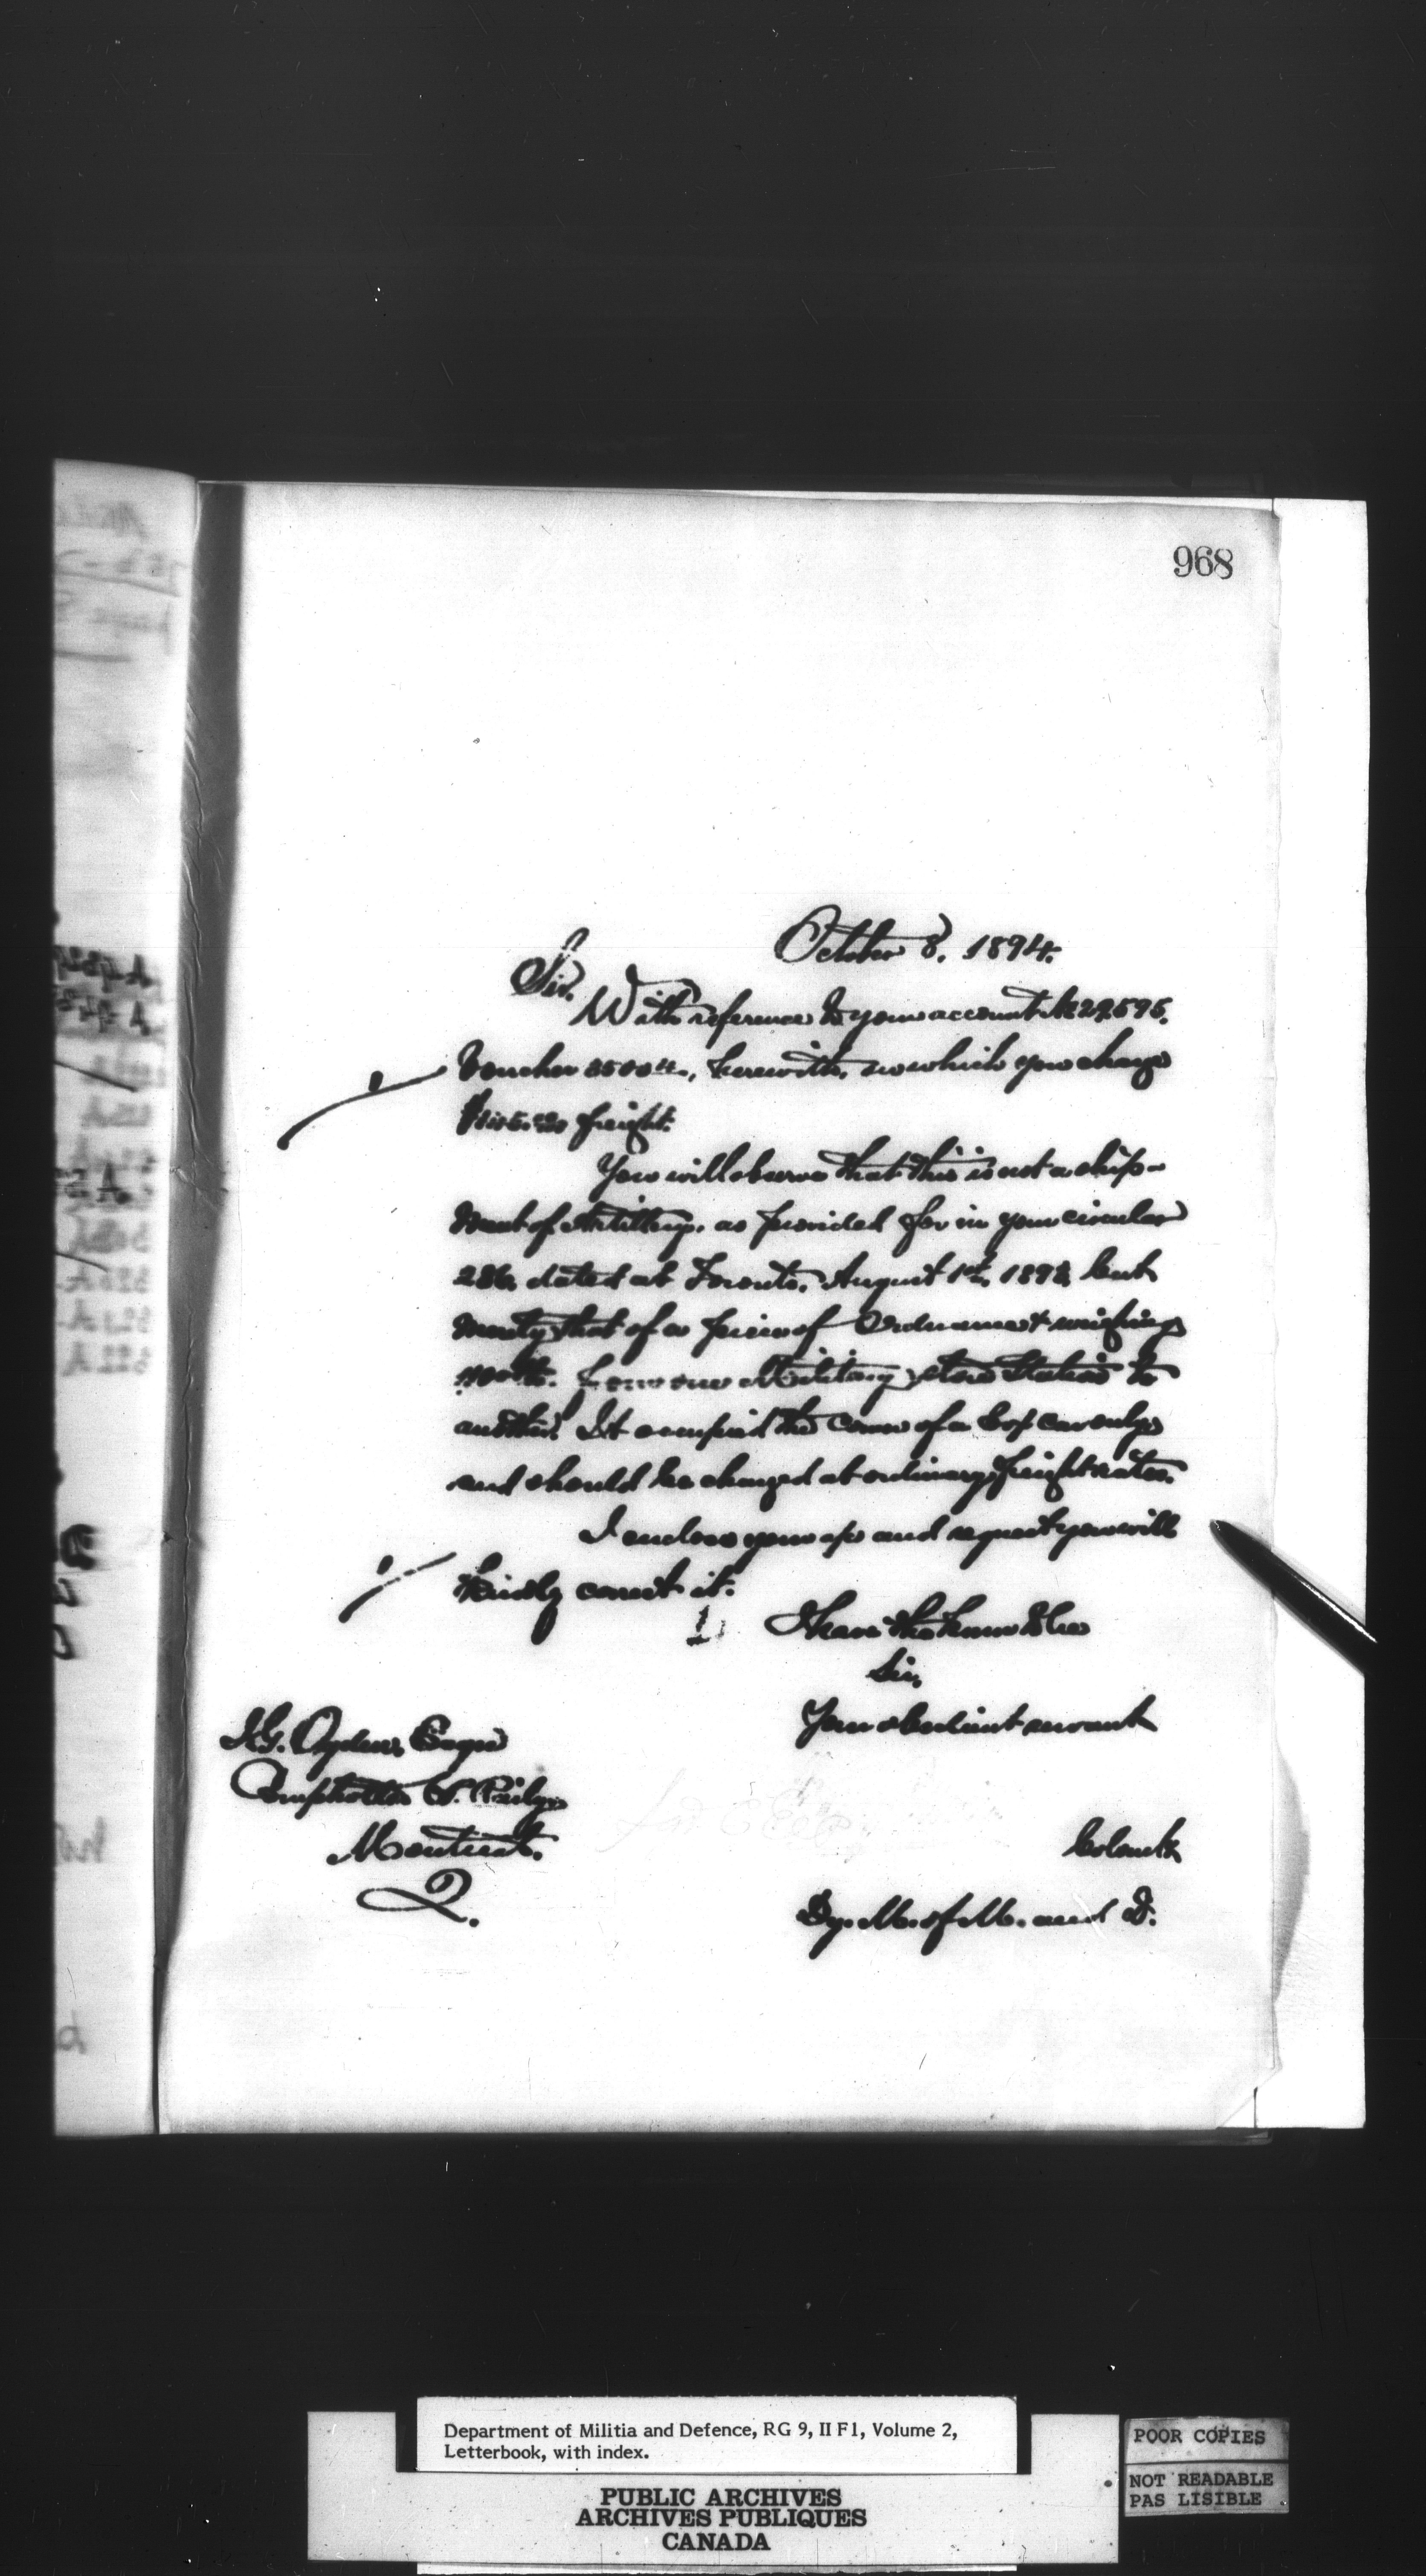 968
October 8. 1894.
Sir.
With reference to your account No 29595.
Voucher herewith, in which you charge
freight.
You will observe that this is not a ship-
ment of Artillery, as provided for in your circular
286, dated at Toronto, August 1st, but
merely that of a piece of Ordnance weighing
from one Military Store Station to
another. It occupied the of a car only
and should be charged at ordinary freight rates.
I enclose your a/c and request you will
Kindly correct it.
I have the honor to be
Sir,
Your obedient servant
I.G. Ogden, Esqre
Comptroller C.P. Railway
Montreal.
Q.
Colonel,
Dy. M. of M. and D.
Department of Militia and Defence, RG 9, II F1, Volume 2,
Letterbook, with index.
PUBLIC ARCHIVES
ARCHIVES PUBLIQUES
CANADA
POOR COPIES
NOT READABLE
PAS LISIBLE